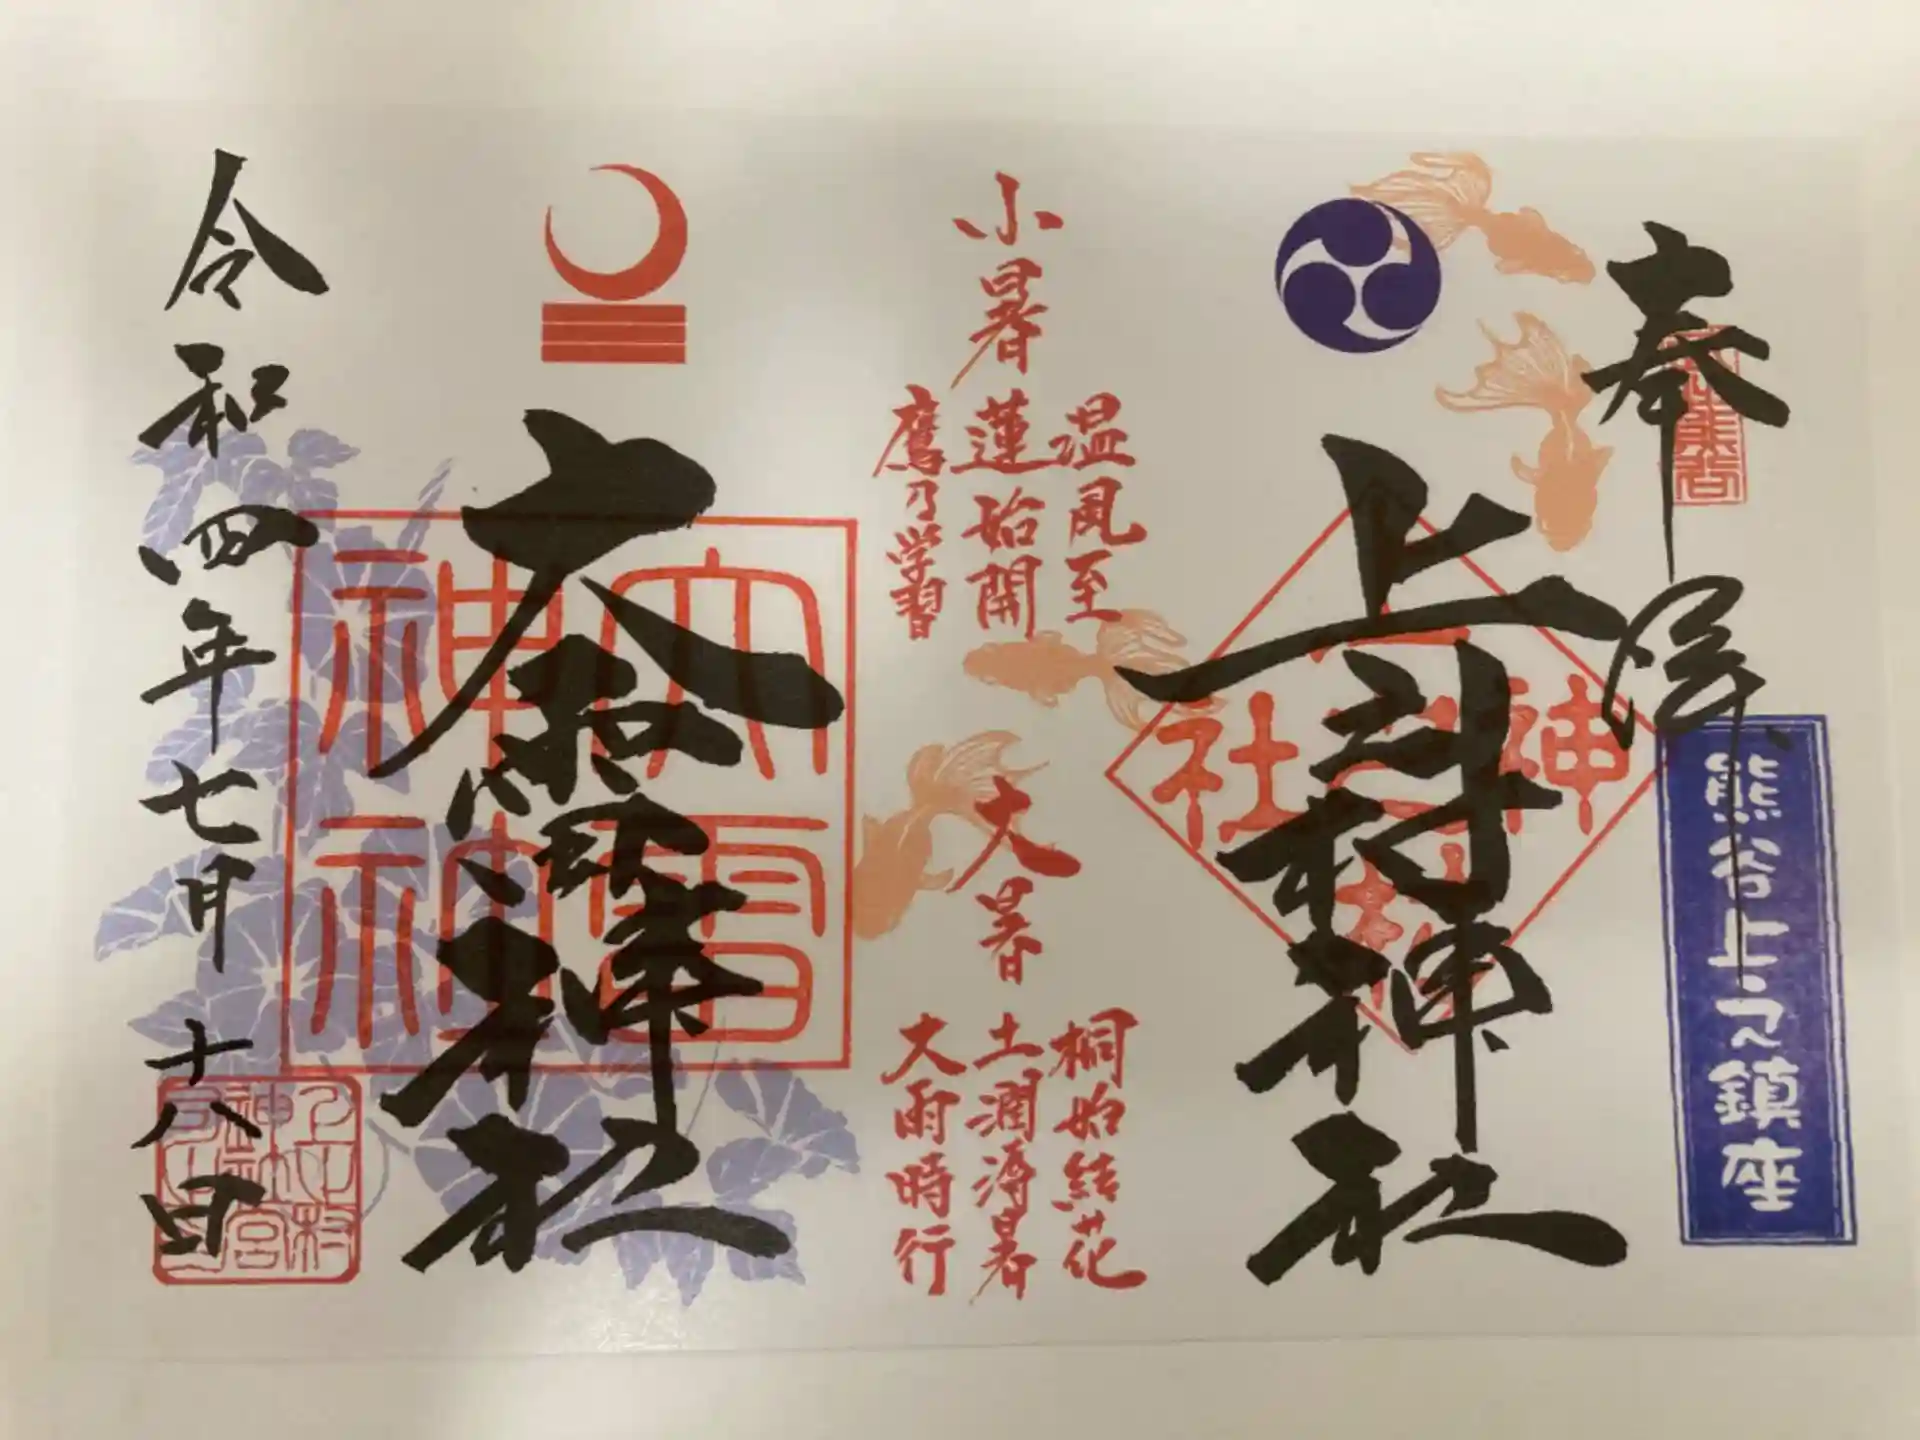 奉拝
熊谷上之鎮座
上之村神社
小暑
温風至
蓮始開
鷹乃学習
大暑
桐始結花
土潤溽暑
大雨時行
大雷神社
大雷
神社
令和四年七月十八日